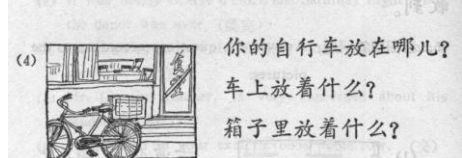 (4)
你的自行车放在哪儿?
车上放着什么?
箱子里放着什么?
食堂